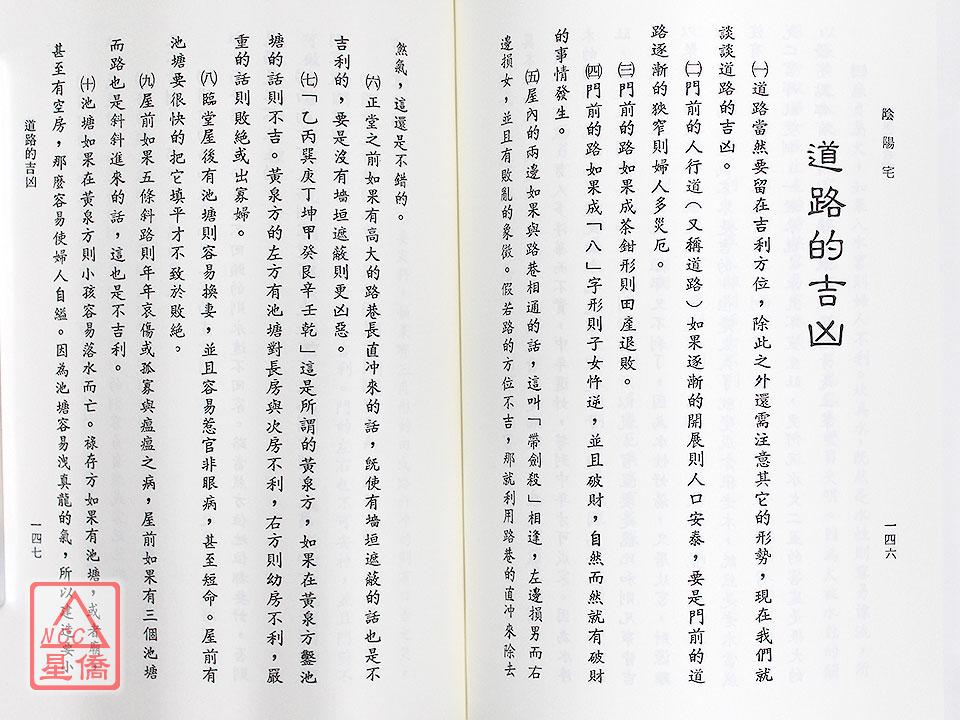 陰陽宅
一四六
道路的吉凶
㈠道路當然要留在吉利方位，除此之外還需注意其它的形勢，現在我們就
談談道路的吉凶。
㈡門前的人行道（又稱道路）如果逐漸的開展則人口安泰，要是門前的道
路逐漸的狹窄則婦人多災厄。
㈢門前的路如果成茶鉗形則田產退敗。
㈣門前的路如果成「八」字形則子女忤逆，並且破財，自然而然就有破財
的事情發生。
㈤屋內的兩邊如果與路巷相通的話，這叫「帶劍殺」相逢，左邊損男而右
邊損女，並且有敗亂的象徵。假若路的方位不吉，那就利用路巷的直冲來除去
煞氣，這還是不錯的。
㈥正堂之前如果有高大的路巷長直冲來的話，旣使有墻垣遮蔽的話也是不
吉利的，要是沒有墻垣遮蔽則更凶惡。
㈦「乙丙巽庚丁坤甲癸艮辛壬乾」這是所謂的黃泉方，如果在黃泉方鑿池
塘的話則不吉。黃泉方的左方有池塘對長房與次房不利，右方則幼房不利，嚴
重的話則敗絕或出寡婦。
㈧臨堂屋後有池塘則容易換妻，並且容易惹官非眼病，甚至短命。屋前有
池塘要很快的把它填平才不致於敗絕。
㈨屋前如果五條斜路則年年哀傷或孤寡與瘟瘟之病，屋前如果有三個池塘
而路也是斜斜進來的話，這也是不吉利。
㈩池塘如果在黃泉方則小孩容易落水而亡。祿存方如果有池塘，或者廟，
甚至有空房，那麼容易使婦人自縊。因為池塘容易洩真龍的氣，所以建造要小
道路的吉凶
一四七
NCC
星僑